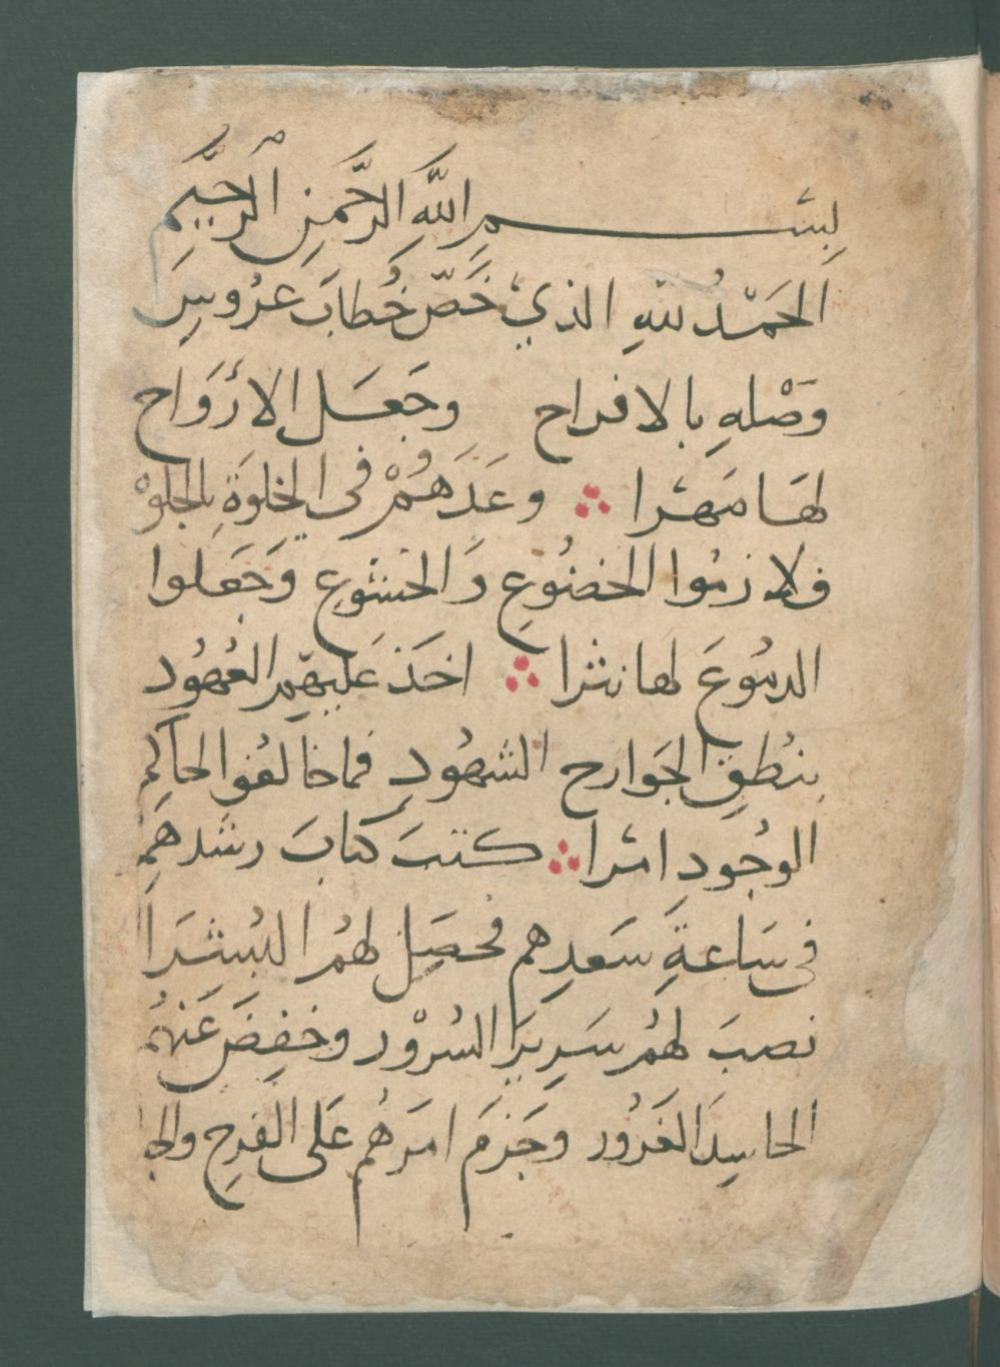 بِسْمِ اللَّهِ الرَّحْمَنِ الرَّحِيمِ
الحَمْدُ للهِ الذي خَصّ خُطابَ عَرُوسِ
وَصْلهِ بالافراح وجَعَل الارْوَاح
لهَا مَهْرا وعَدَهُمْ في الخلوَةِ بالجلوْ
فلازمُوا الخضُوعِ وَالخشوع وَجَعَلوا
الدمُوعَ لها نثرا اخَذ عَليهِم العُهُود
بنُطقِ الجَوارح الشهُودِ فما خالفوا لحاكم
الوجُودِ امْرا كتبَ كتابَ رشدهِم
في سَاعةِ سَعدِهم فحصَل لهُم البُشرَا
نصبَ لهُم سَرِيرَ السُرُور وخفِضَ عَنهُم
الحاسِدَ الغَرُور وجَزمَ امرَهُم عَلى الفرحِ والج